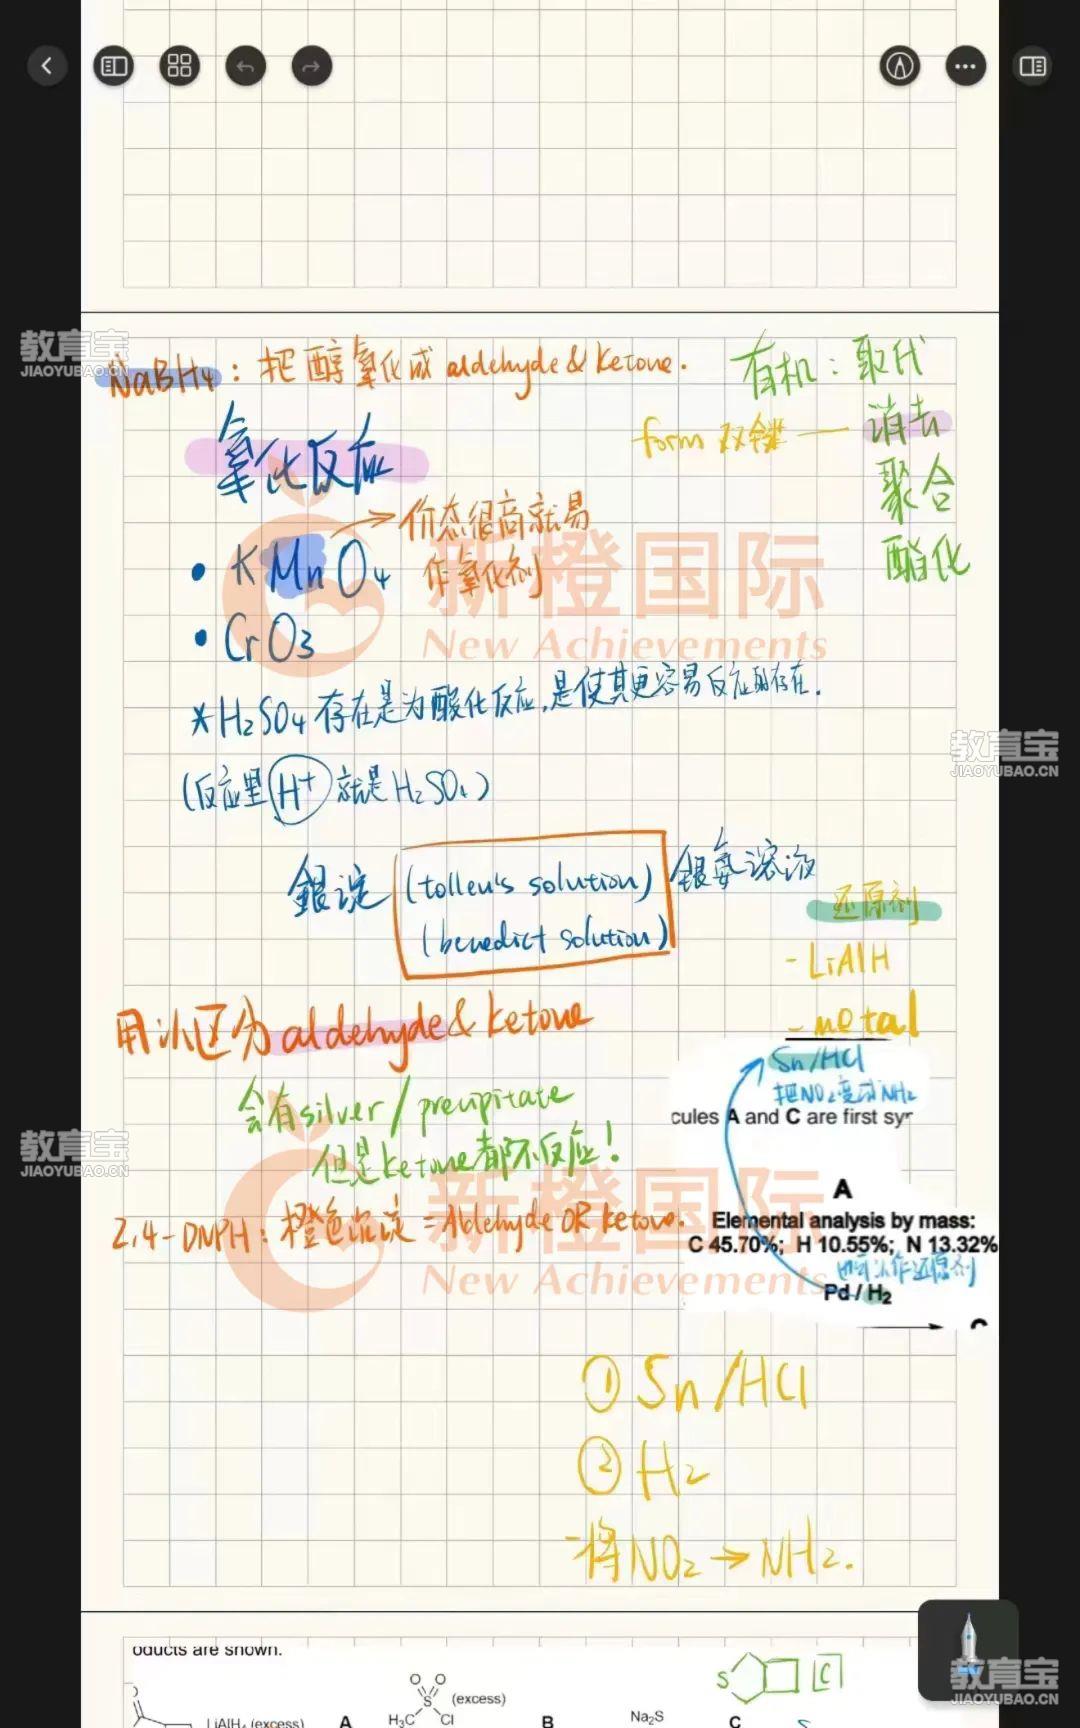 教育宝
JIAOYUBAO.CN
NaBH4：把醇氧化成 aldehyde & ketone.
有机：取代
form 双键 — 消去
聚合
酯化
氧化反应
→ 价态很高就易
作氧化剂
• KMnO4
• CrO3
新橙国际
New Achievements
*H2SO4 存在是为酸化反应，是使其更容易反应的存在.
(反应里 H+ 就是 H2SO4)
教育宝
JIAOYUBAO.CN
銀淀 (tollen's solution) 銀氨溶液
(benedict solution)
还原剂
- LiAlH
- metal
Sn/HCl
把NO2变成NH2
用以区分 aldehyde & ketone
会有silver / precipitate
但是ketone都不反应！
教育宝
JIAOYUBAO.CN
新橙国际
New Achievements
2,4-DNPH：橙色沉淀 = Aldehyde OR ketone.
cules A and C are first syr
A
Elemental analysis by mass:
C 45.70%; H 10.55%; N 13.32%
作还原剂
Pd / H2
① Sn/HCl
② H2
- 将NO2 → NH2.
oducts are shown.
LiAlH4 (excess)
A
O O
S
H3C Cl
(excess)
B
Na2S
C
S
[C]
教育宝
JIAOYUBAO.CN